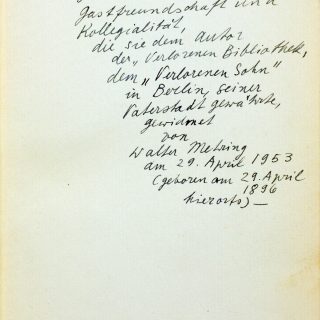 Gastfreundschaft und
Kollegialität,
die sie dem Autor
der „Verlorenen Bibliothek,
dem „Verlorenen Sohn"
in Berlin, seiner
Vaterstadt gewährte,
gewidmet
von
Walter Mehring
am 29. April 1953
(geboren am 29. April
1896
hierorts) —